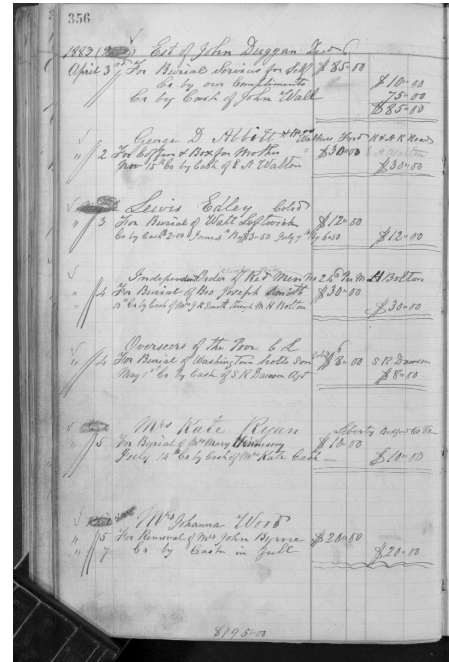 356
1883 Est of John Duggan Decd
April 3rd For Burial Services for Self $85.00
Cr by our Compliments $10.00
Cr by Cash of John Wall 75.00
$85.00
George D. Abbitt Walkers Ford R & A R Road
" 2 For Coffin & Box for Mother $30.00
Nov 15th Cr by Cash of Walton $30.00
Lewis Edley Cold
" 3 For Burial of Walt Leftwich $12.00
Cr by Cash 2.00 $3.50 July 6.50 $12.00
Independent Order of Red Men No M H Bolton
" 4 For Burial of Geo Joseph Smith $30.00
15th Cr by Cash of Mrs J R Smith through M H Bolton $30.00
Overseers of the Poor C L
" 4 For Burial of Washington Scotts Son $8.00 S R Dawson
May 1st Cr by Cash of S R Dawson Agt $8.00
Mrs Kate Ryan Liberty Bedford Co Va
" 5 For Burial of Mrs Mary $10.00
July 14th Cr by Cash of Mrs Kate $10.00
Mrs Johanna Wood
" 5 For Removal of Mrs John Byrne $20.00
" 7 Cr by Cash in full $20.00
$195.00